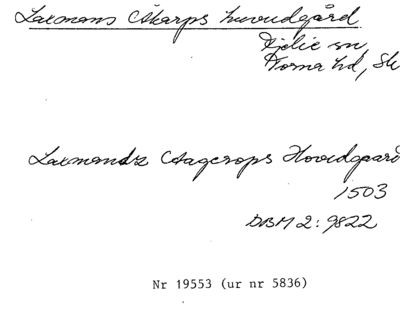 Laxmans Åkarps huvudgård
Fjelie sn,
Torna hd, Sk
Laxmandz Aagerops Hovidgaard
1503
DBM 2: 9822
Nr 19553 (ur nr 5836)